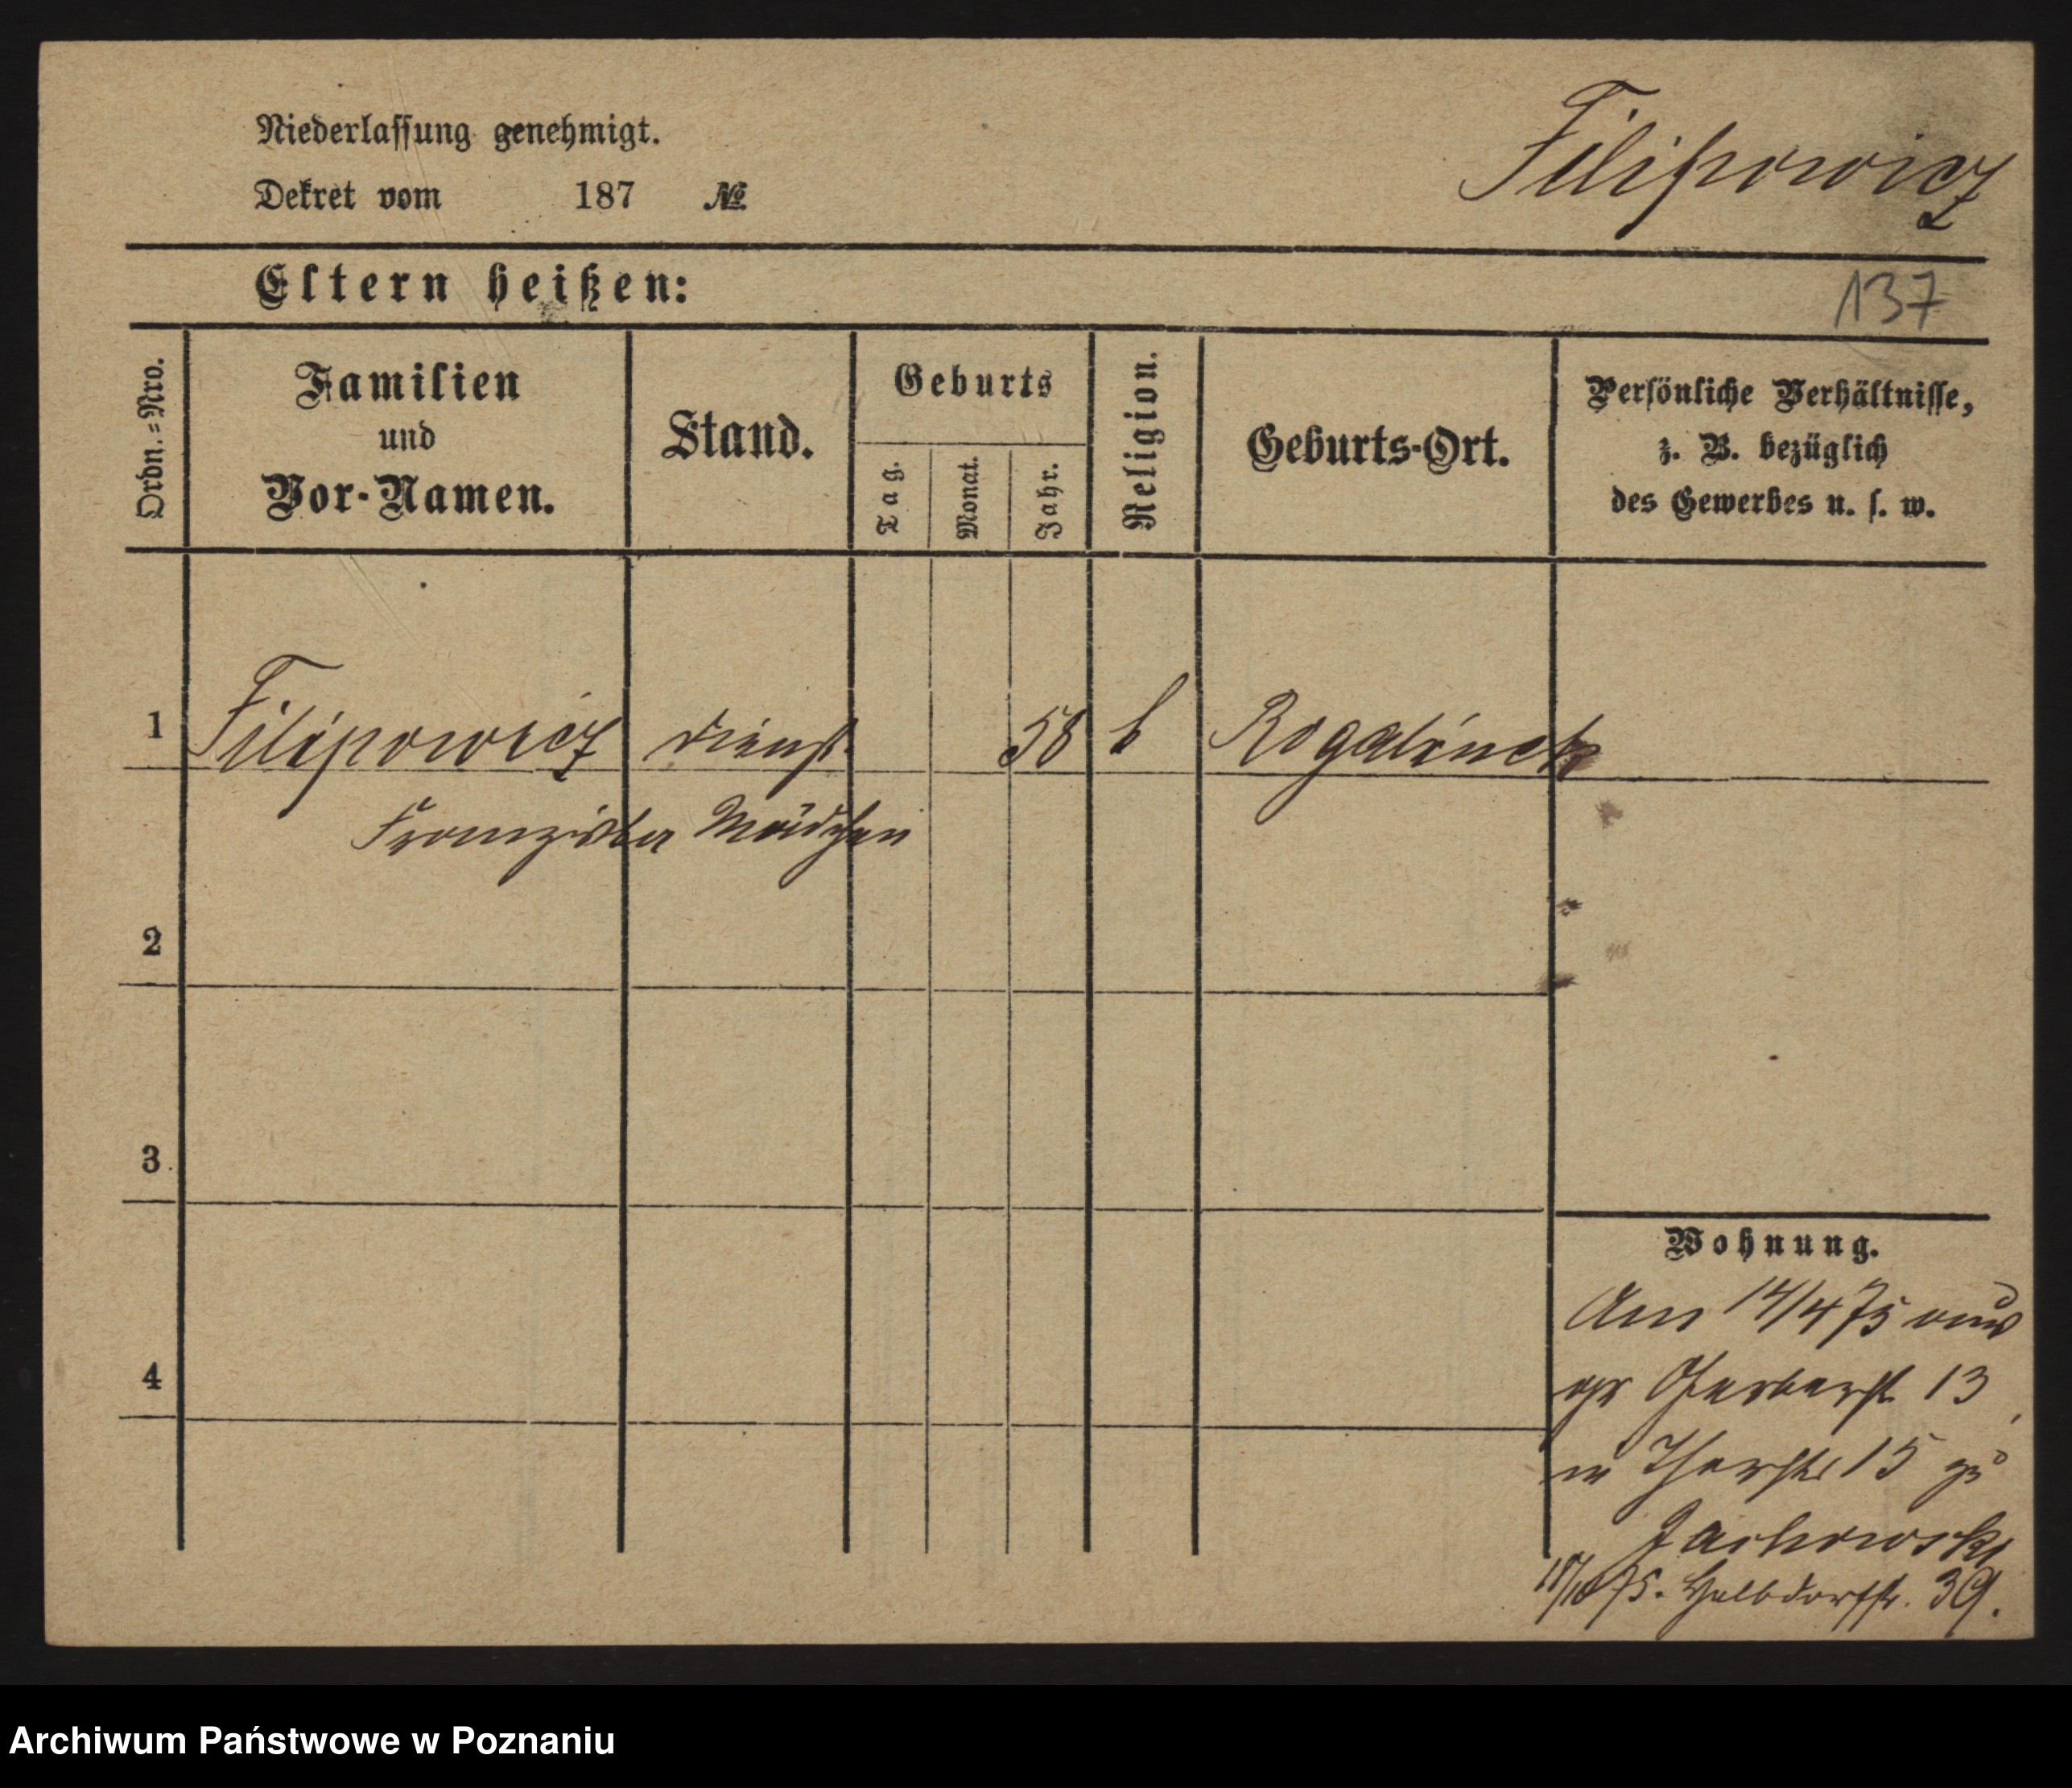 Filipowicz
Niederlassung genehmigt.
Dekret vom 187 №
Eltern heißen:
137
Ordn.=Nro.
Familien
und
Vor-Namen.
Stand.
Geburts
Tag.
Monat.
Jahr.
Religion.
Geburts-Ort.
Persönliche Verhältnisse,
z. B. bezüglich
des Gewerbes u. s. w.
1 Filipowicz Dienst 58 k Rogalinek
Franziska Mädchen
2
3
4
Wohnung.
Am 14/4 75 aus
gr Gerberstr 13
n Thorstr 15 zu
18/10 75. Halbdorfstr. 39.
Archiwum Państwowe w Poznaniu